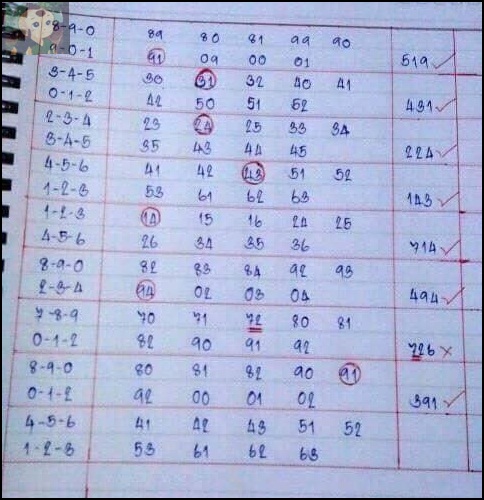 8-9-0 89 80 81 99 90
9-0-1 91 09 00 01 519✓
3-4-5 30 31 32 40 41
0-1-2 42 50 51 52 431✓
2-3-4 23 24 25 33 34
3-4-5 35 43 44 45 224✓
4-5-6 41 42 43 51 52
1-2-3 53 61 62 63 143✓
1-2-3 14 15 16 24 25
4-5-6 26 34 35 36 714✓
8-9-0 82 83 84 92 93
2-3-4 94 02 03 04 494✓
7-8-9 70 71 72 80 81
0-1-2 82 90 91 92 726×
8-9-0 80 81 82 90 91
0-1-2 92 00 01 02 391✓
4-5-6 41 42 43 51 52
1-2-3 53 61 62 63